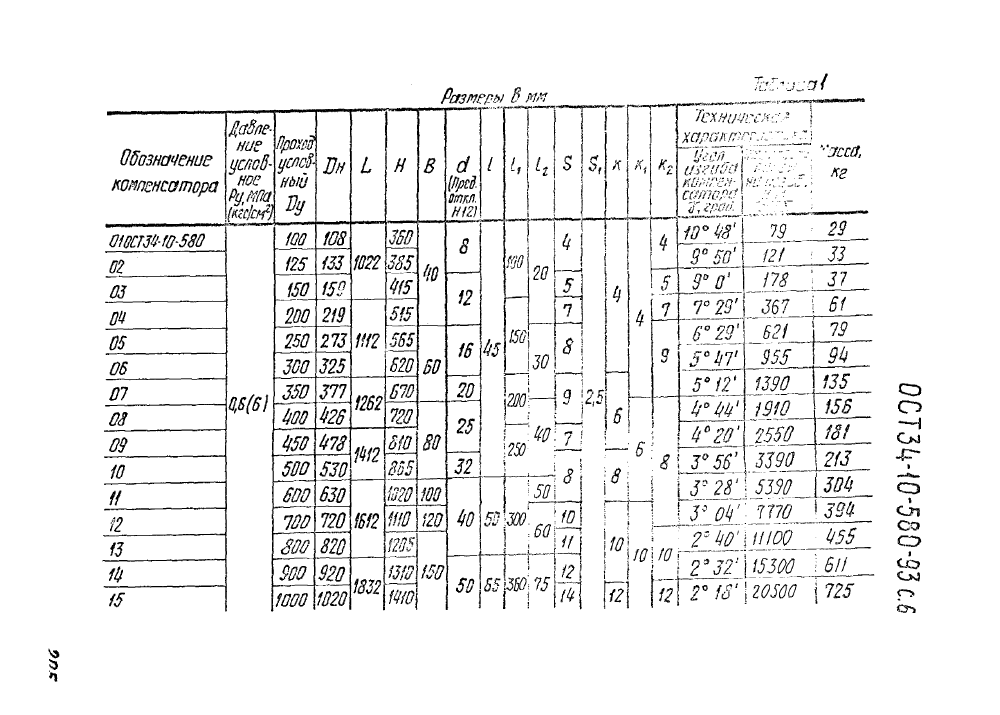 Таблица 1
Размеры в мм
Обозначение компенсатора | Давление условное Ру, МПа (кгс/см²) | Проход условный Dу | Dн | L | H | B | d (Пред. откл. H12) | l | l₁ | l₂ | S | S₁ | к | к₁ | к₂ | Техническая характеристика | Масса, кг
Угол изгиба компенсатора γ, град.
01ОСТ34-10-580 | 0,6(6) | 100 | 108 | 1022 | 360 | 40 | 8 | 45 | 100 | 20 | 4 | 2,5 | 4 | 4 | 4 | 10° 48' | 79 | 29
02 | 125 | 133 | 385 | 9° 50' | 121 | 33
03 | 150 | 159 | 415 | 12 | 5 | 5 | 9° 0' | 178 | 37
04 | 200 | 219 | 1112 | 515 | 150 | 7 | 7 | 7° 29' | 367 | 61
05 | 250 | 273 | 565 | 60 | 16 | 30 | 8 | 9 | 6° 29' | 621 | 79
06 | 300 | 325 | 620 | 5° 47' | 955 | 94
07 | 350 | 377 | 1262 | 670 | 20 | 200 | 9 | 6 | 5° 12' | 1390 | 135
08 | 400 | 426 | 720 | 80 | 25 | 40 | 6 | 8 | 4° 44' | 1910 | 156
09 | 450 | 478 | 1412 | 810 | 250 | 7 | 4° 20' | 2550 | 181
10 | 500 | 530 | 865 | 32 | 8 | 8 | 3° 56' | 3390 | 213
11 | 600 | 630 | 1612 | 1020 | 100 | 40 | 50 | 300 | 50 | 3° 28' | 5390 | 304
12 | 700 | 720 | 1110 | 120 | 60 | 10 | 10 | 10 | 3° 04' | 7770 | 394
13 | 800 | 820 | 1205 | 150 | 11 | 10 | 2° 40' | 11100 | 455
14 | 900 | 920 | 1832 | 1310 | 50 | 55 | 360 | 75 | 12 | 2° 32' | 15300 | 611
15 | 1000 | 1020 | 1410 | 14 | 12 | 12 | 2° 18' | 20500 | 725
ОСТ34-10-580-93 с.6